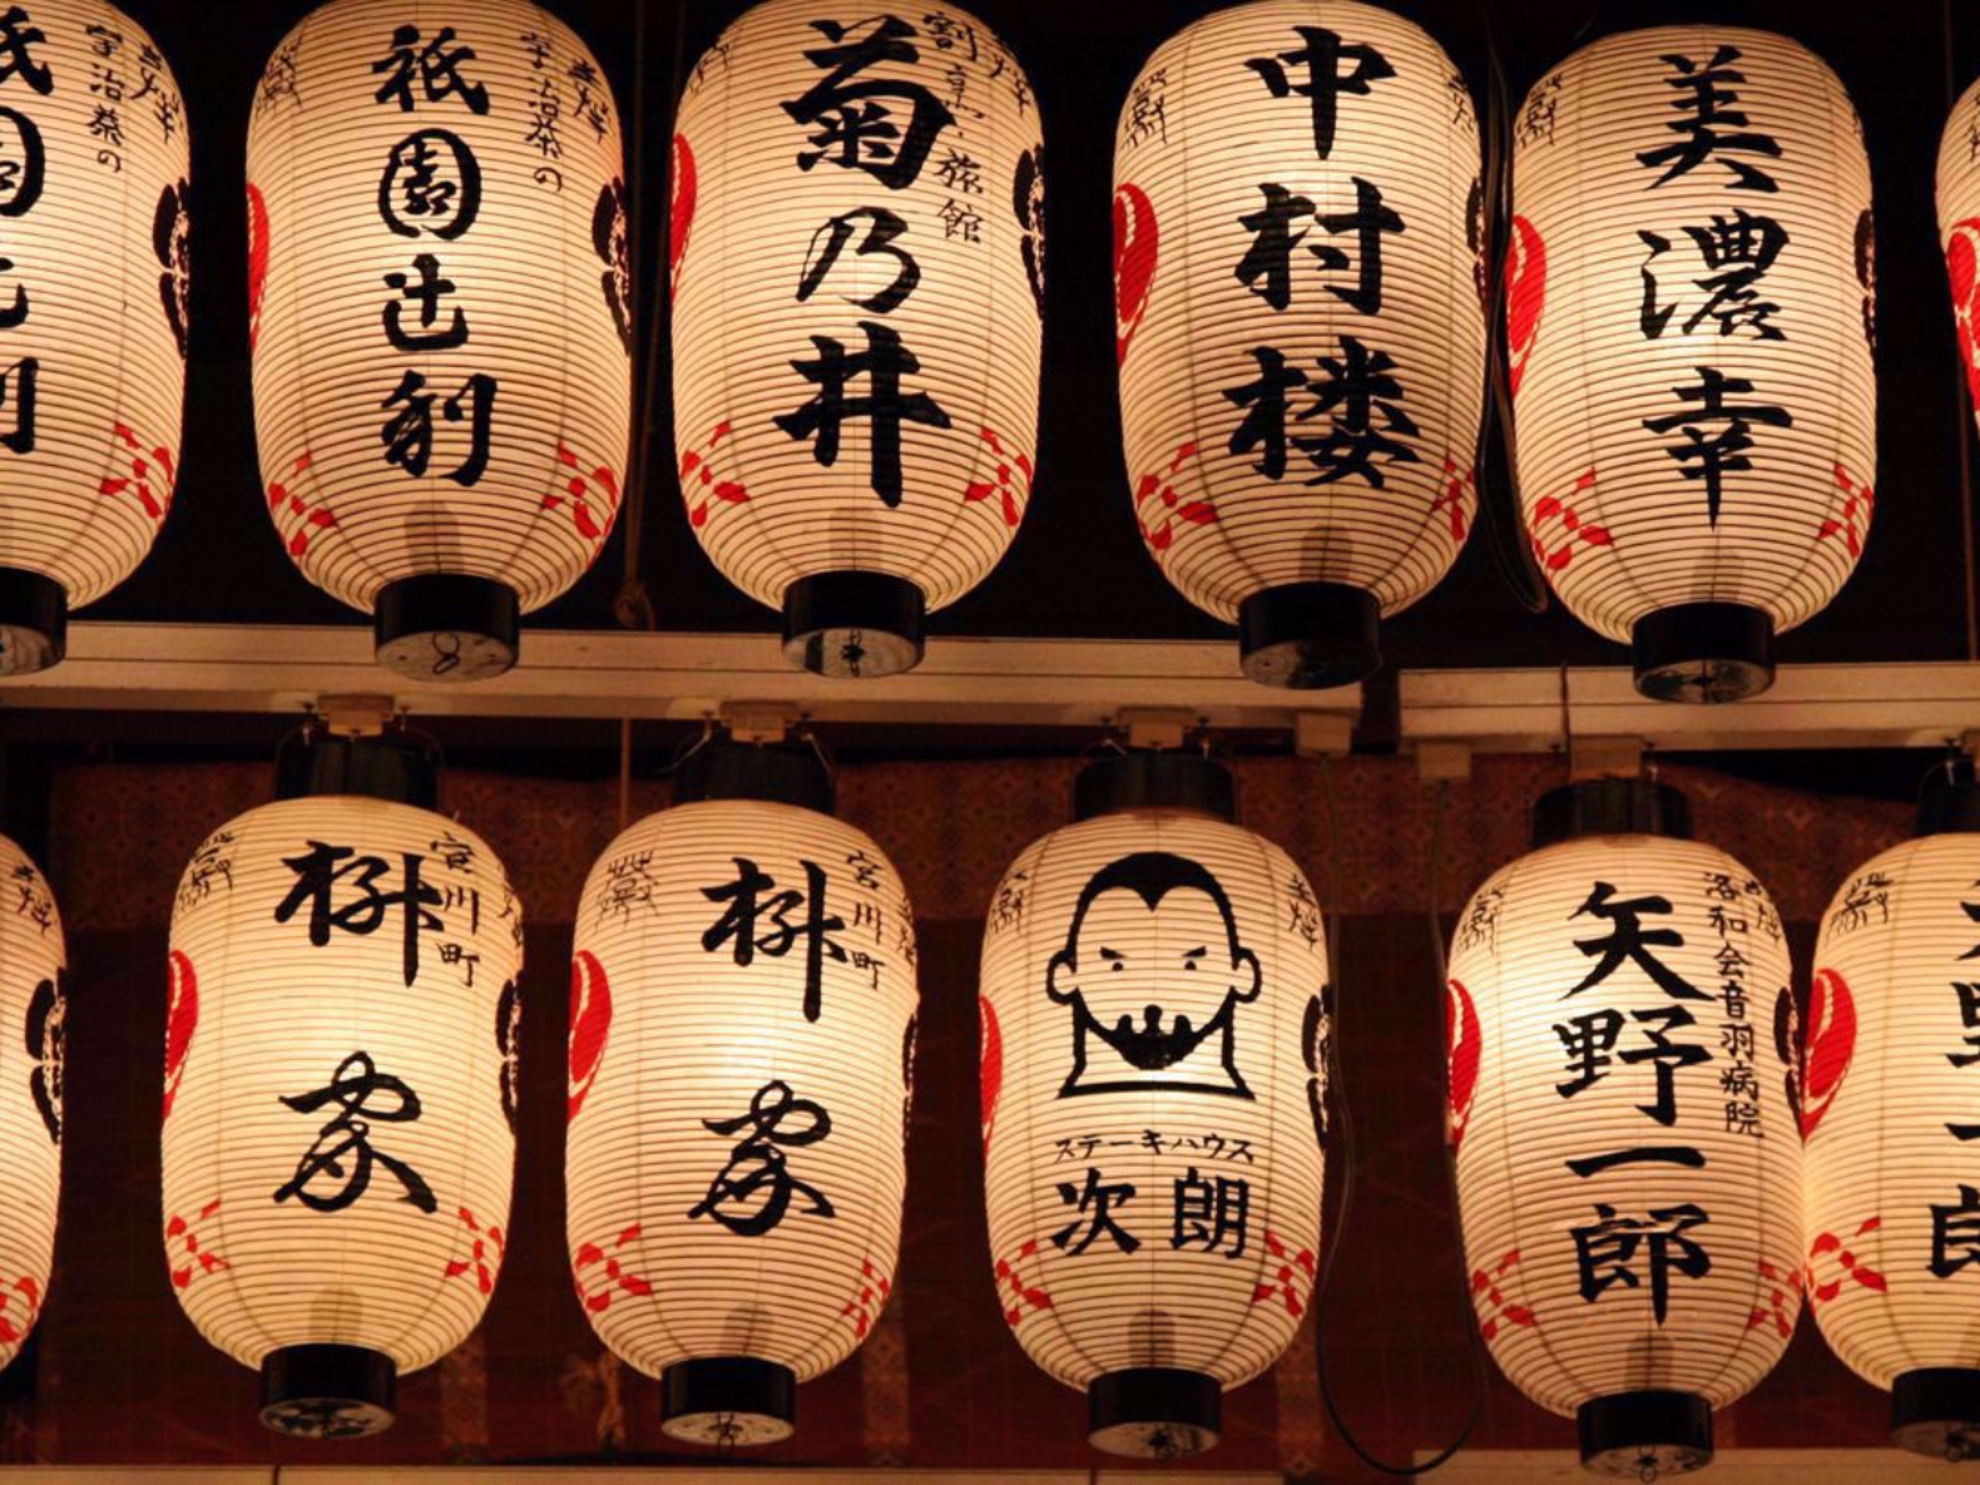 宇治茶の
祇園辻利
宇治茶の
割烹・旅館
菊乃井
中村楼
美濃幸
宮川町
枡家
宮川町
枡家
ステーキハウス
次朗
洛和会音羽病院
矢野一郎